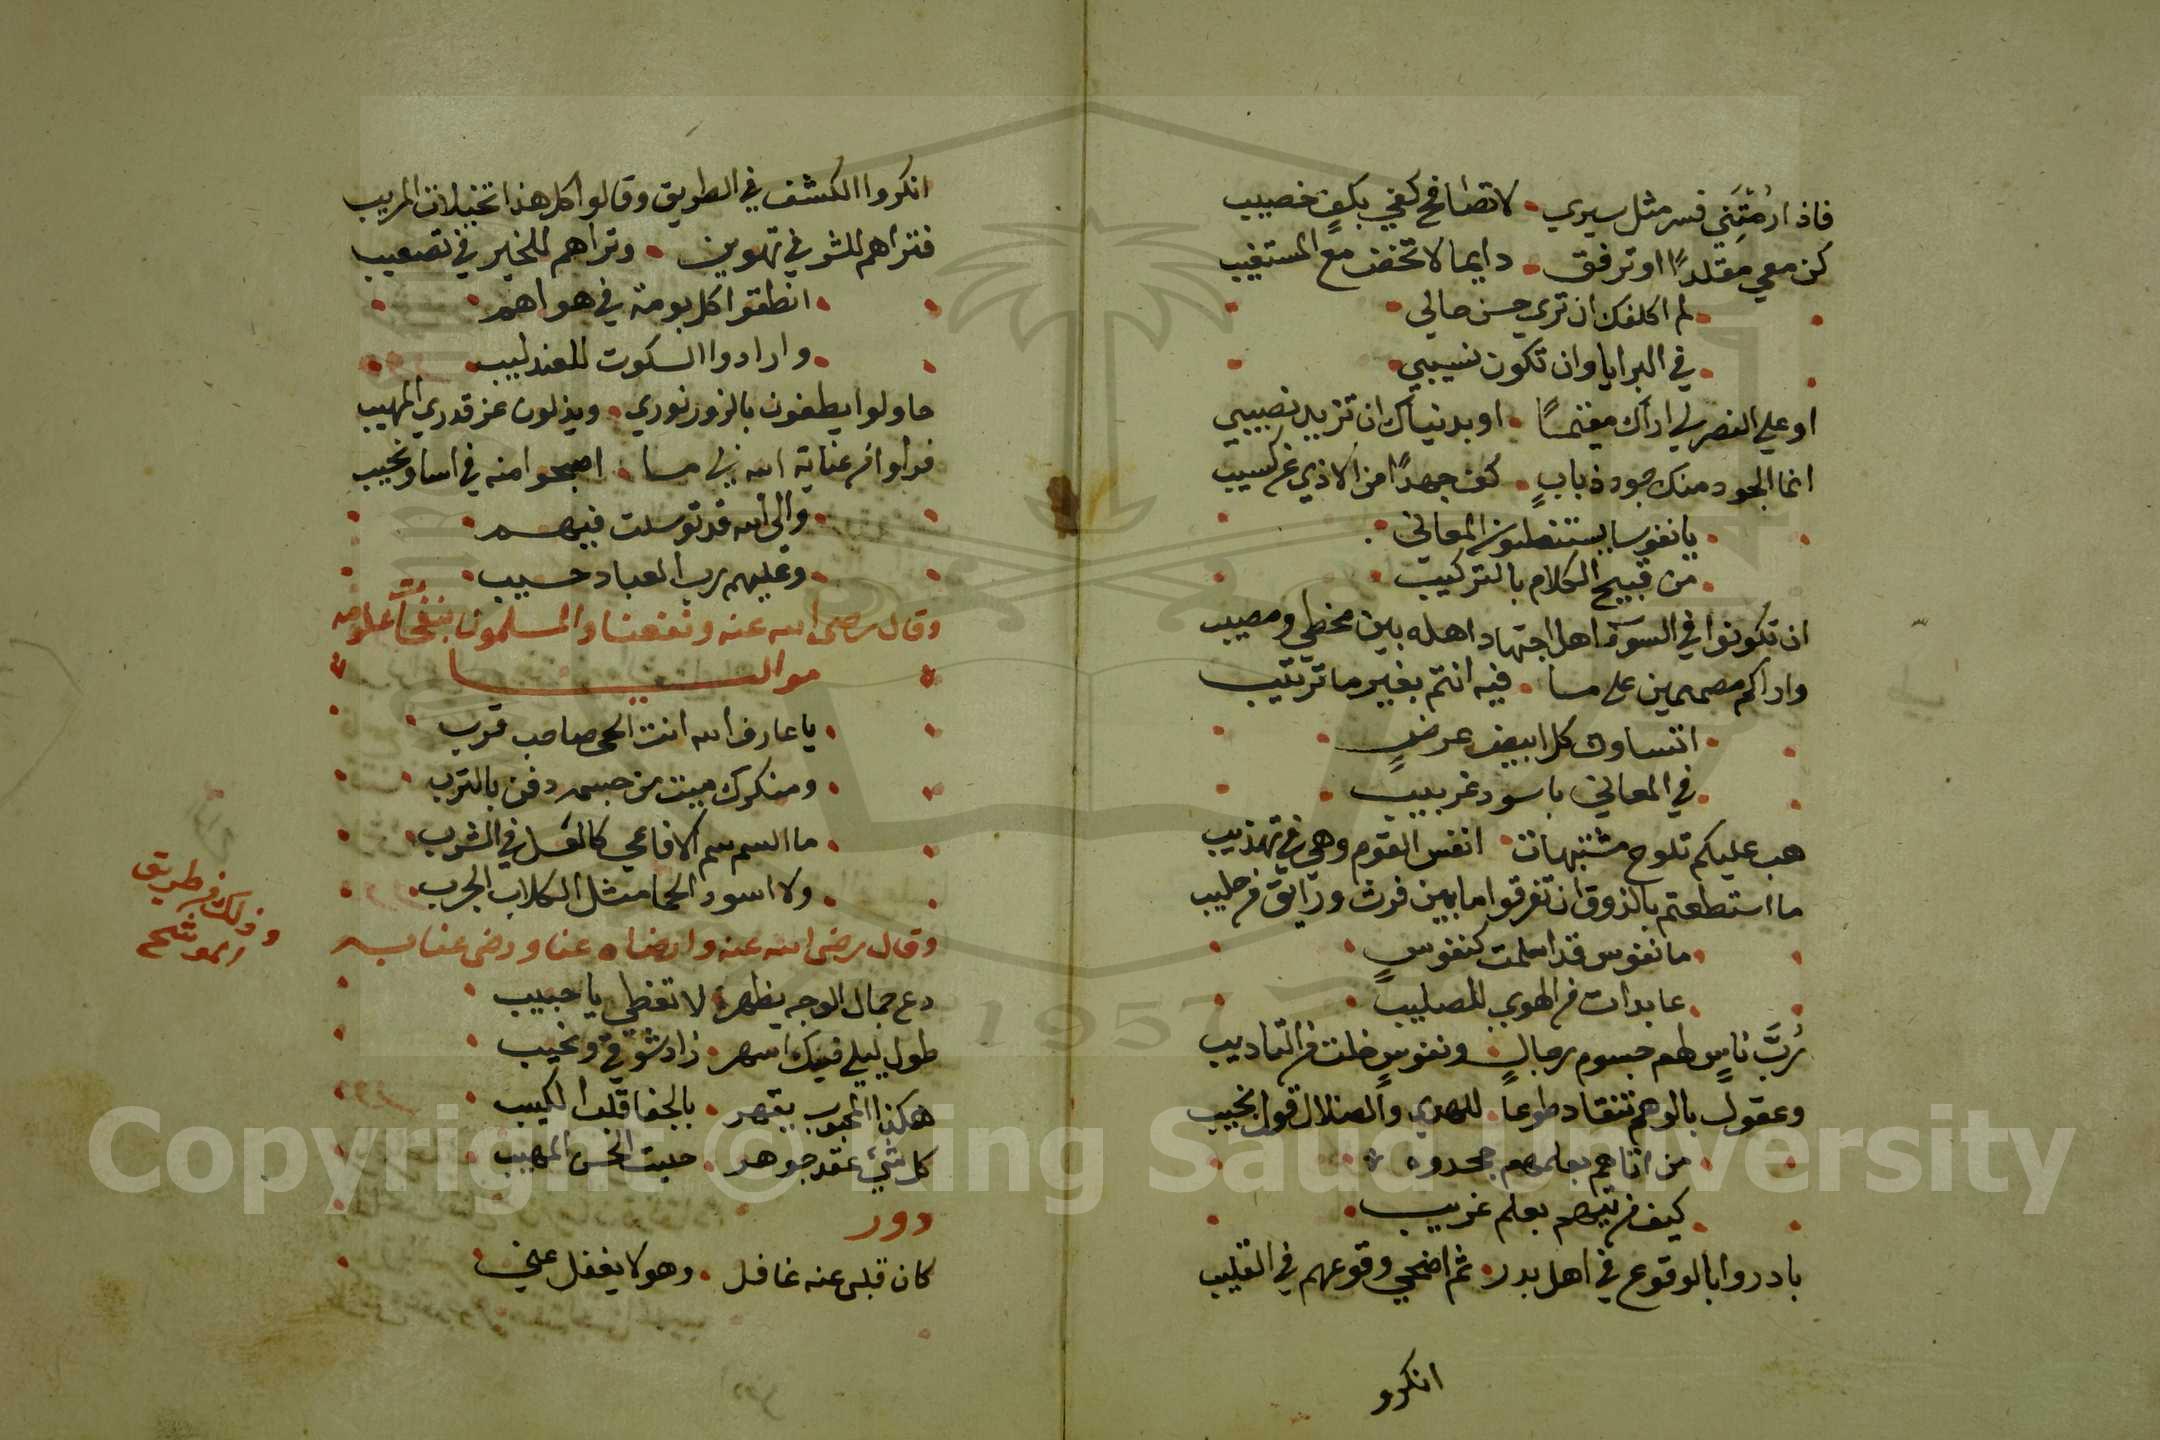 فاذا رُمْتَني فسر مثل سيري لا تصافح كفي بكفٍ خصيب
كن معي مقتلدًا او ترفق دايما لا تخض مع المستغيب
لم اكلفك ان تري حسن حالي
في البرايا وان تكون نسيبي
او علي النصر لي اراك مغتمسًا او بدنياك ان تزيد نصيبي
انما الجود منك جود ذبابٍ كف جهدًا من الاذي غركسيب
يا نفوسا يستنطون المعاني
من قبيح الكلام بالتركيب
ان تكونوا في السوء اهل اجتهاد اهله بين مخطي ومصيب
واراكم مصممين على مسا فيه انتم بغير ما ترتيب
اتساوك كل ابيض عرضٍ
في المعاني باسود غربيب
هب عليكم تلوح مشتبهات انفس القوم وهي في تهذيب
ما استطعتم بالذوق ان تفرقوا ما بين فرث ورائق من حليب
ما نفوس قد اسلمت كنفوسٍ
عابدات من الهوي للصليب
رُبَّ ناسٍ لهم جسوم رجالٍ ونفوسٍ خلت من التاديب
وعقول بالوهم تنقاد طوعا للهدي والضلال قول نجيب
من اتاهم بعلمهم جحدوه
كيف من تيههم بعلم غريب
بادروا بالوقوع في اهل بدر ثم اضحي وقوعهم في القليب
انكرو
انكروا الكشف في الطريق وقالوا كل هذا تخيلات المريب
فتراهم للشر في تهوين وتراهم للخير في تصعيب
انطقوا كل بومة في هواهم
وارادوا السكوت للعندليب
حاولوا يطفون بالزور نوري ويذلون عز قدري المهيب
فراوا من عناية الله بي مسا اصبحوا منه في اسا ونحيب
والى الله قد توسلت فيهم
وعليهم رب العباد حسيب
وقال رضى الله عنه ونفعنا والمسلمون بنفحات علومه
مواليـا
يا عارف الله انت الحى صاحب قرب
ومنكرك ميت من جسمه دفن بالترب
ما السم سم الافاعي كالعسل في الشرب
ولا اسود الحما مثل الكلاب الجرب
وقال رضى الله عنه وارضاه عنا ورضى عنا به
وذلك من طريق
الموشح
دع جمال الوجه يظهر لا تغطي يا حبيب
طول ليلي فيك اسهر زاد شوقي ونحيب
هكذا المحبوب يقهر بالجفا قلب الكييب
كل شئ عقد جوهر حليت الحسن المهيب
دور
كان قبلى عنه غافل وهو لا يغفل عني